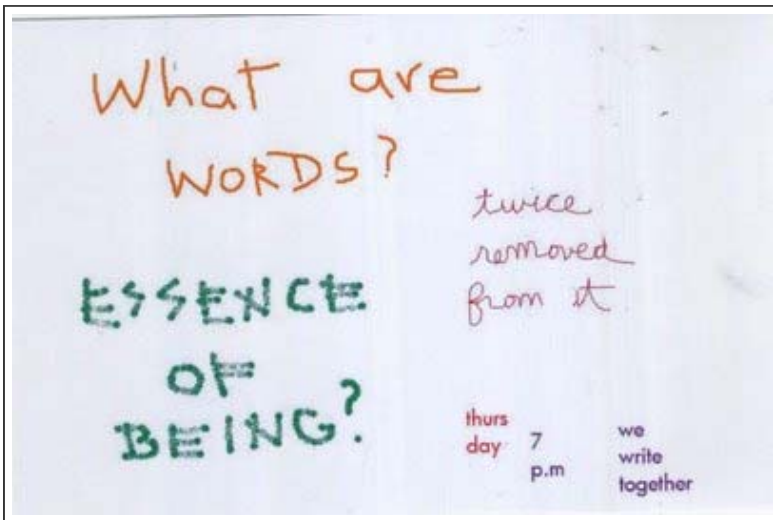 What are
WORDS?
ESSENCE
OF
BEING?
twice
removed
from it
thurs
day
7
p.m
we
write
together